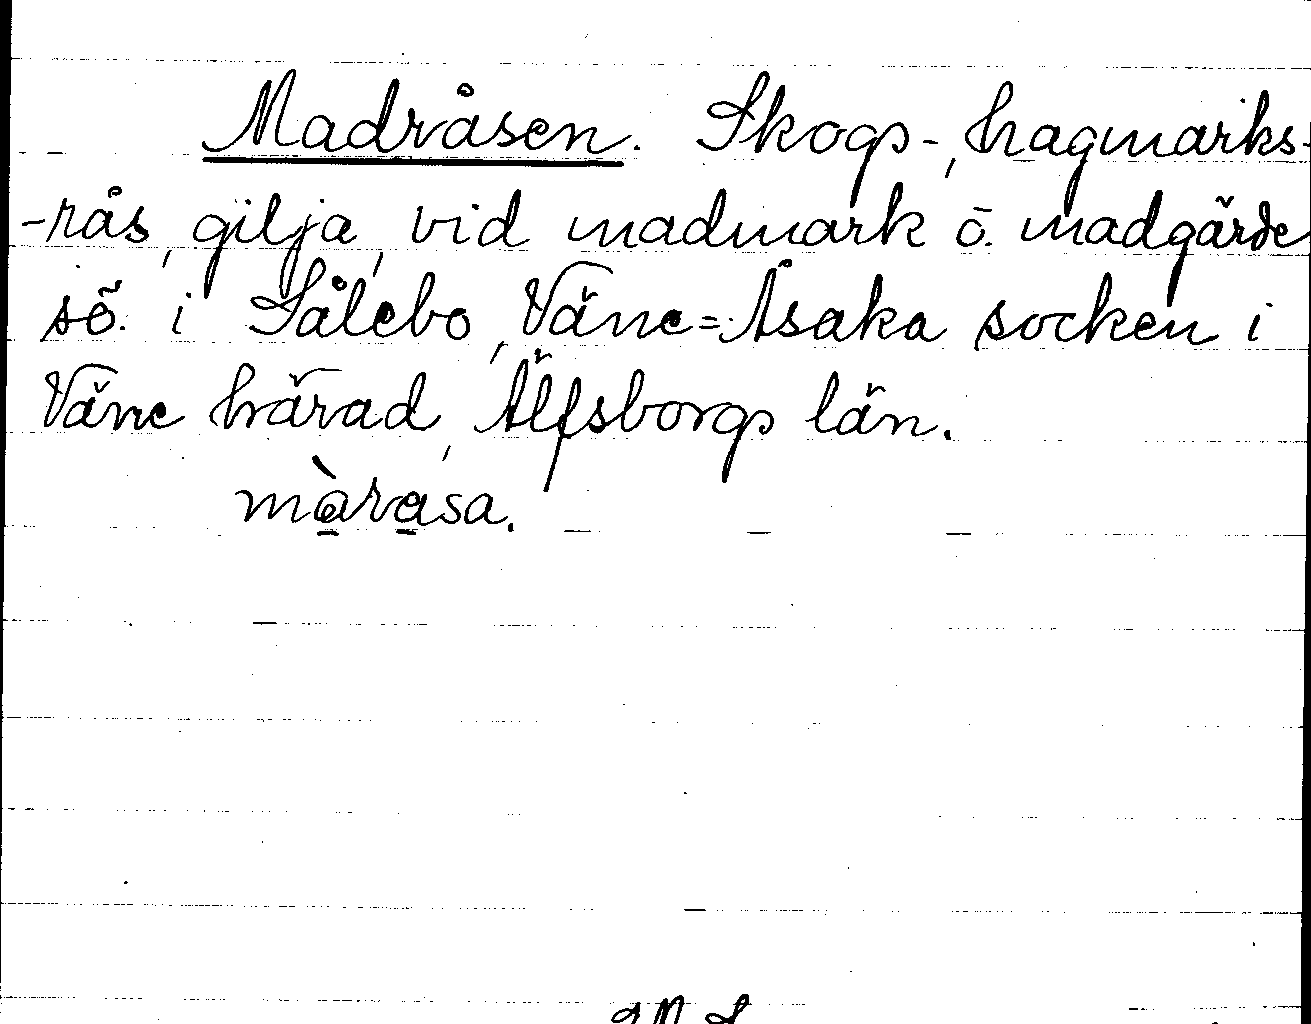 Madråsen. Skogs-, hagmarks-
-rås, gilja, vid madmark ö. madgärde
sö. i Sålebo, Väne=Åsaka socken i
Väne härad, Älfsborgs län.
màrasa.